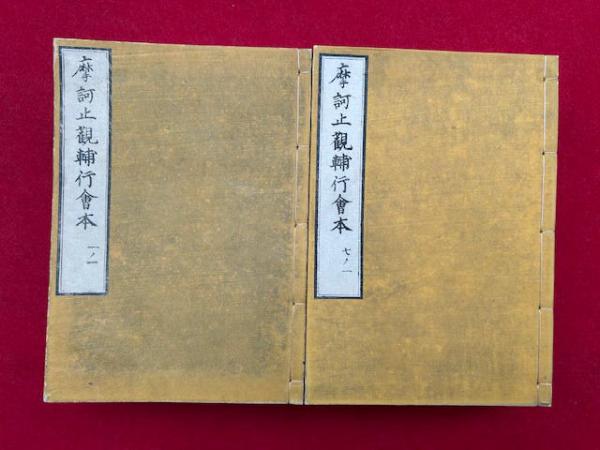 摩訶止觀輔行會本
一ノ一
摩訶止觀輔行會本
七ノ一